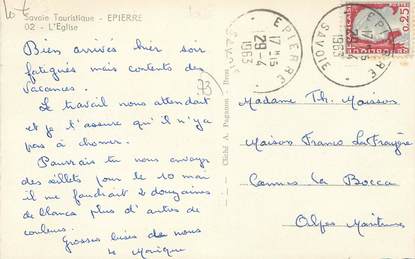 Savoie Touristique - EPIERRE
02 - L'Eglise
Bien arrivés hier soir
fatigués mais contents des
vacances.
Le travail nous attendait
et je t'assure qu'il n'y a
pas à chomer.
Pourrais tu nous envoyer
des œillets pour le 10 mai
il me faudrait 2 douzaines
de blancs plus d'autres de
couleurs.
Grosses bises de nous
Monique
73
Cliché A. Paganon
EPIERRE
17H15
29-4
1963
SAVOIE
EPIERRE
1963
SAVOIE
0,25F
Madame Th.
Maison Franco
Cannes La Bocca
Alpes Maritimes